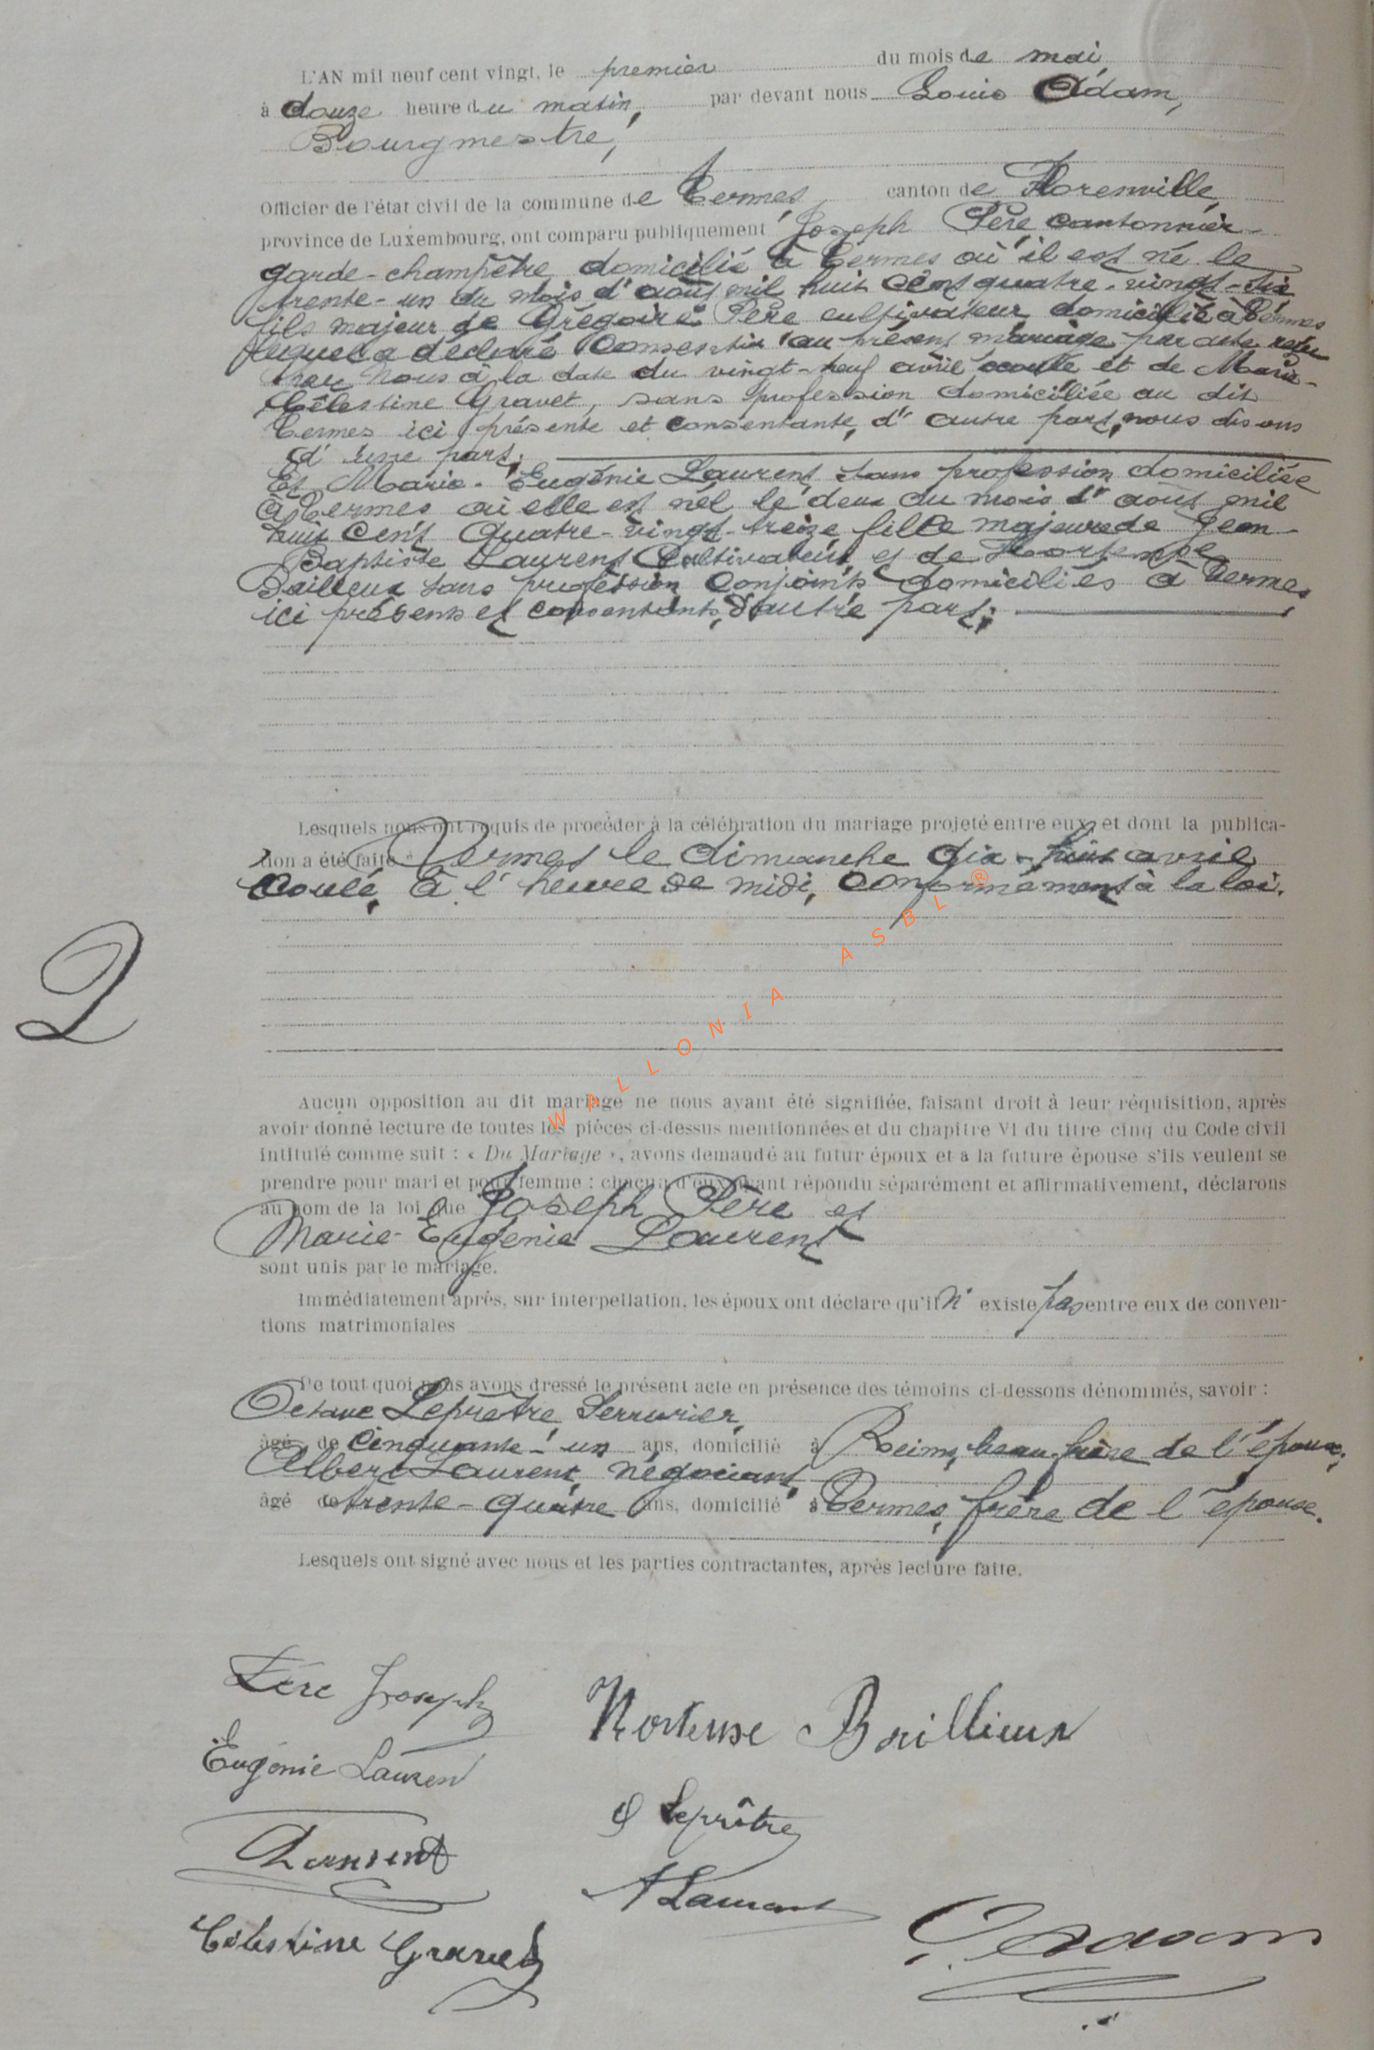 L'AN mil neuf cent vingt, le premier du mois de mai
à douze heure du matin, par devant nous Louis Adam,
Bourgmestre,
Officier de l'état civil de la commune de Termes, canton de Florenville,
province de Luxembourg, ont comparu publiquement Joseph Père cantonnier-
garde-champêtre domicilié à Termes où il est né le
trente-un du mois d'août mil huit cent quatre-vingt-six
fils majeur de Grégoire Père cultivateur domicilié à Termes
lequel a déclaré consentir au présent mariage par acte reçu
par nous à la date du vingt-neuf avril écoulé et de Marie-
Célestine Gravet, sans profession domiciliée au dit
Termes ici présente et consentante, d'autre part, nous disons
d'une part;
Et Marie-Eugénie Laurent sans profession domiciliée
à Termes où elle est née le deux du mois d'août mil
huit cent quatre-vingt-treize fille majeure de Jean-
Baptiste Laurent Cultivateur et de Hortense
Bailleux sans profession conjoints domiciliés à Termes,
ici présents et consentants, d'autre part;
Lesquels nous ont requis de procéder à la célébration du mariage projeté entre eux, et dont la publica-
tion a été faite à Termes le dimanche dix-huit avril
écoulé, à l'heure de midi, conformément à la loi.
2
WALLONIA ASBL ®
Aucun opposition au dit mariage ne nous ayant été signifiée, faisant droit à leur réquisition, après
avoir donné lecture de toutes les pièces ci-dessus mentionnées et du chapitre VI du titre cinq du Code civil
intitulé comme suit : « Du Mariage », avons demandé au futur époux et à la future épouse s'ils veulent se
prendre pour mari et pour femme : chacun d'eux ayant répondu séparément et affirmativement, déclarons
au nom de la loi que Joseph Père et
Marie-Eugénie Laurent
sont unis par le mariage.
Immédiatement après, sur interpellation, les époux ont déclaré qu'il n' existe pas entre eux de conven-
tions matrimoniales
De tout quoi nous avons dressé le présent acte en présence des témoins ci-dessons dénommés, savoir :
Octave Leprêtre Serrurier,
âgé de cinquante-un ans, domicilié à Reims, beau-frère de l'époux;
Albert Laurent, négociant,
âgé de trente-quatre ans, domicilié à Termes, frère de l'épouse.
Lesquels ont signé avec nous et les parties contractantes, après lecture faite.
Père Joseph
Hortense Baillieux
Eugénie Laurent
O Leprêtre
Laurent
A Laurent
Célestine Gravet
L Adam